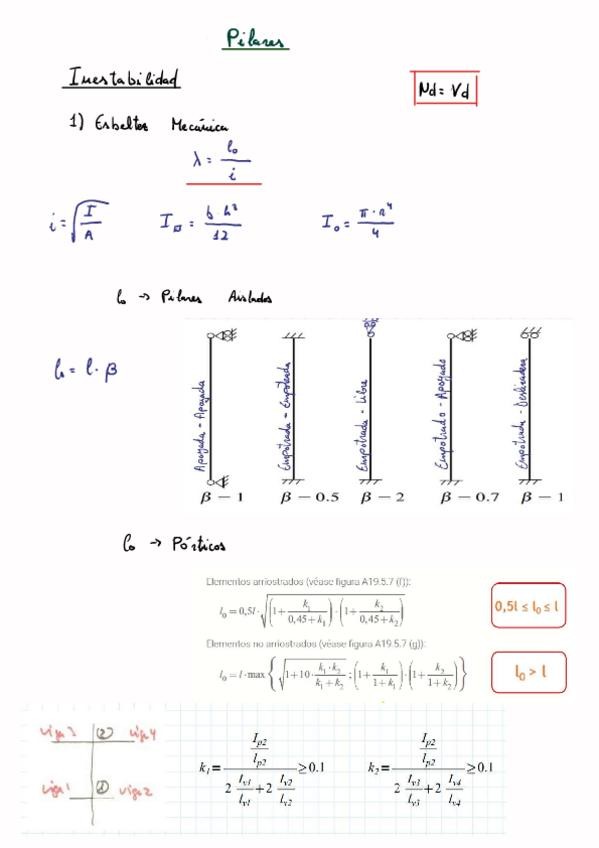 Pilares
Inestabilidad
Nd = Vd
1) Esbeltez Mecánica
λ = l₀ / i
i = √(I / A)
I▱ = b · h³ / 12
I₀ = π · r⁴ / 4
l₀ → Pilares Aislados
l₀ = l · β
Apoyada - Apoyada
Empotrada - Empotrada
Empotrada - Libre
Empotrado - Apoyado
Empotrada - Deslizadera
β − 1
β − 0.5
β − 2
β − 0.7
β − 1
l₀ → Pórticos
Elementos arriostrados (véase figura A19.5.7 (f)):
l₀ = 0,5l · √((1 + k₁ / (0,45 + k₁)) · (1 + k₂ / (0,45 + k₂)))
0,5l ≤ l₀ ≤ l
Elementos no arriostrados (véase figura A19.5.7 (g)):
l₀ = l · max {√(1 + 10 · k₁ · k₂ / (k₁ + k₂)) ; (1 + k₁ / (1 + k₁)) · (1 + k₂ / (1 + k₂))}
l₀ > l
viga 3 (2) viga 4
viga 1 (1) viga 2
k₁ = (I_p2 / l_p2) / (2 I_v1 / l_v1 + 2 I_v2 / l_v2) ≥ 0.1
k₂ = (I_p2 / l_p2) / (2 I_v3 / l_v3 + 2 I_v4 / l_v4) ≥ 0.1